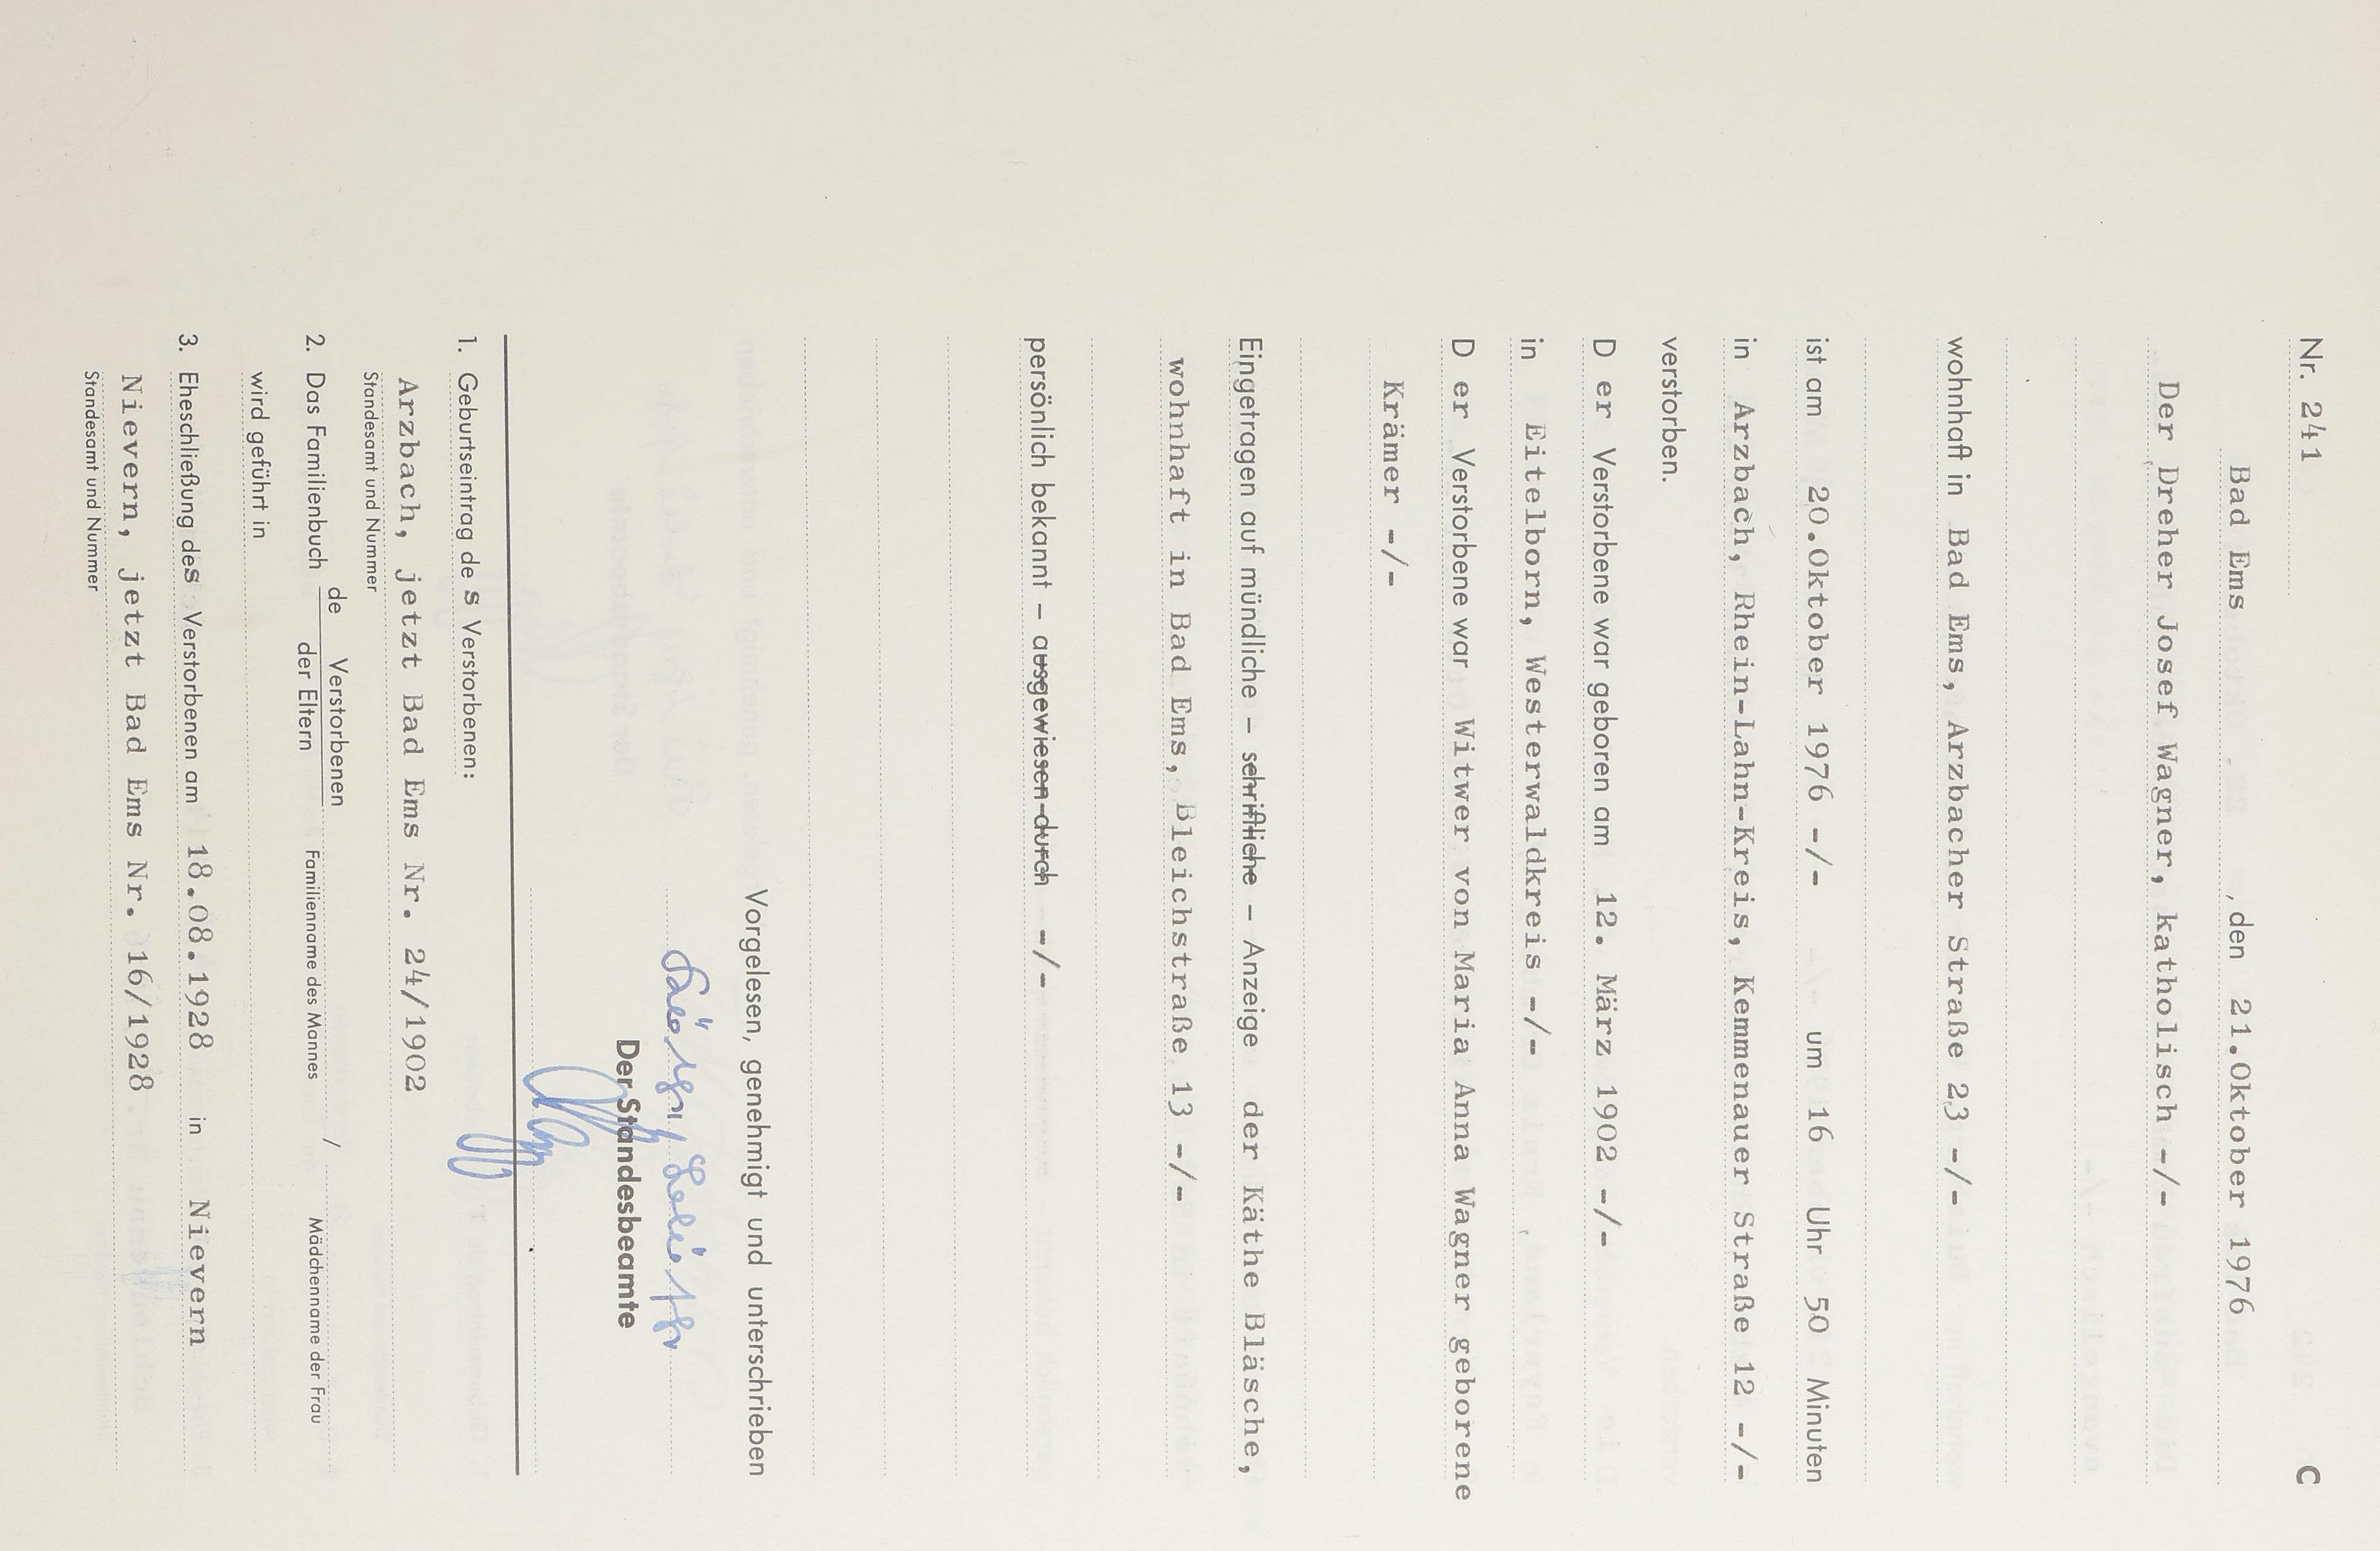 Nr. 241 C
Bad Ems, den 21.Oktober 1976
Der Dreher Josef Wagner, katholisch -/-
wohnhaft in Bad Ems, Arzbacher Straße 23 -/-
ist am 20.Oktober 1976 -/- um 16 Uhr 50 Minuten
in Arzbach, Rhein-Lahn-Kreis, Kemmenauer Straße 12 -/-
verstorben.
D er Verstorbene war geboren am 12. März 1902 -/-
in Eitelborn, Westerwaldkreis -/-
D er Verstorbene war Witwer von Maria Anna Wagner geborene
Krämer -/-
Eingetragen auf mündliche – schriftliche – Anzeige der Käthe Bläsche,
wohnhaft in Bad Ems, Bleichstraße 13 -/-
persönlich bekannt – ausgewiesen durch -/-
Vorgelesen, genehmigt und unterschrieben
Der Standesbeamte
1. Geburtseintrag de s Verstorbenen:
Arzbach, jetzt Bad Ems Nr. 24/1902
Standesamt und Nummer
2. Das Familienbuch de Verstorbenen /
der Eltern Familienname des Mannes Mädchenname der Frau
wird geführt in
3. Eheschließung des Verstorbenen am 18.08.1928 in Nievern
Nievern, jetzt Bad Ems Nr. 16/1928
Standesamt und Nummer